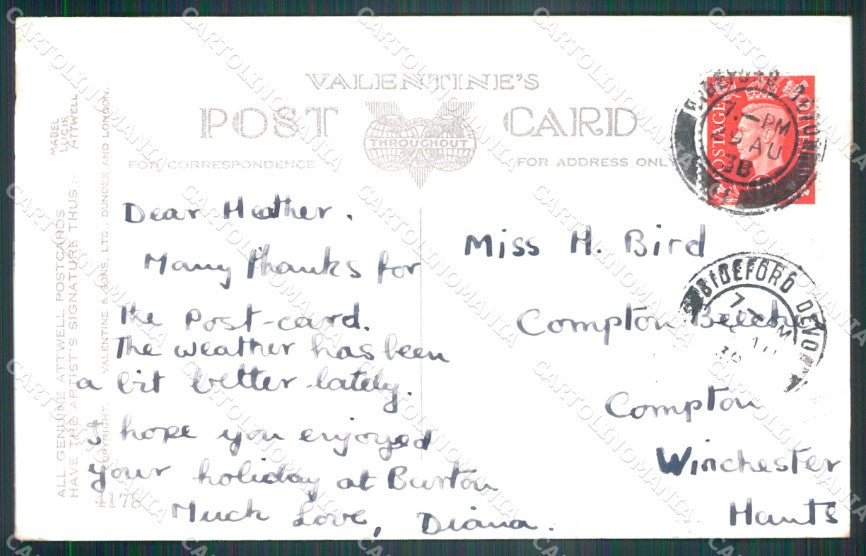 VALENTINE'S
POST CARD
THROUGHOUT
FOR CORRESPONDENCE
FOR ADDRESS ONLY
MABEL
LUCIE
ATTWELL
ALL GENUINE ATTWELL POSTCARDS
HAVE THE ARTIST'S SIGNATURE THUS:-
COPYRIGHT. VALENTINE & SONS, LTD., DUNDEE AND LONDON.
4178
Dear Heather.
Many thanks for
the Post-card.
The weather has been
a bit better lately.
I hope you enjoyed
your holiday at Burton
Much Love, Diana.
Miss H. Bird
Compton Beeches
Compton
Winchester
Hants
POSTAGE
BIDEFORD DEVON
7 - PM
AU
38
BIDEFORD DEVON
7 - PM
CARTOLINOMANIA